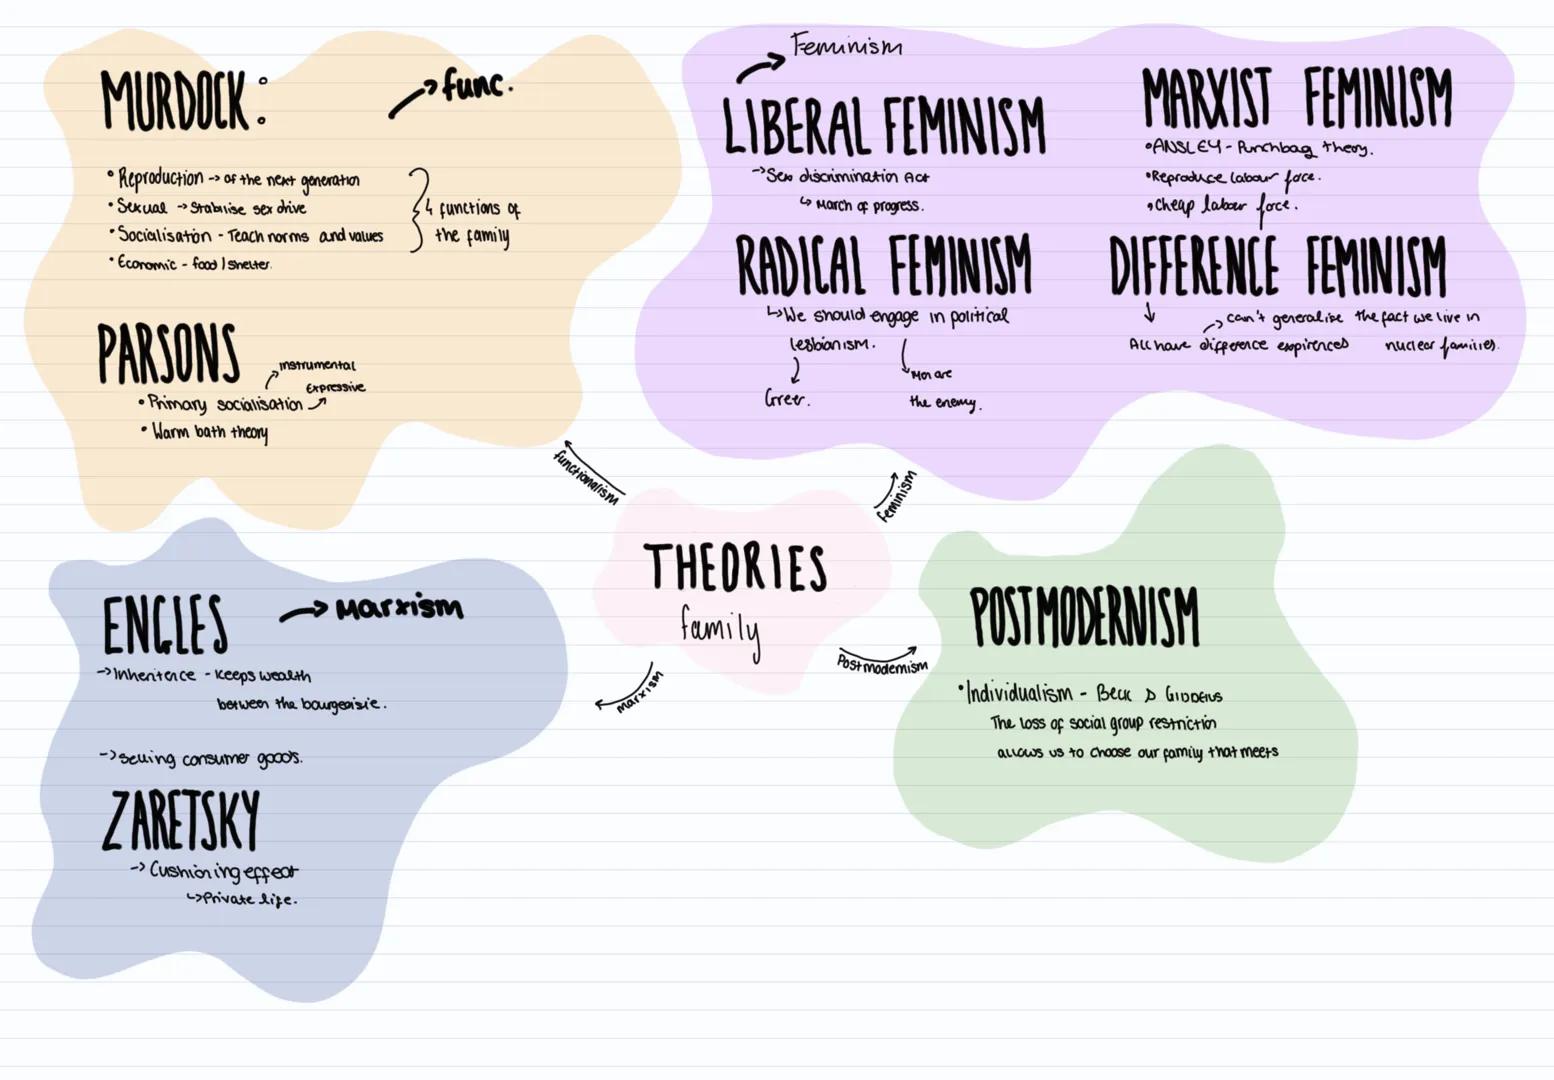 MURDOCK:
→ func.
• Reproduction -> of the next generation
• Sexual -> Stabilise sex drive
• Socialisation - Teach norms and values
• Economic - food / shelter.
4 functions of
the family
PARSONS
instrumental
Expressive
• Primary socialisation
• Warm bath theory
Feminism
LIBERAL FEMINISM
-> Sex discrimination Act
↳ March of progress.
MARXIST FEMINISM
• ANSLEY - Punchbag theory.
• Reproduce labour force.
• Cheap labour force.
RADICAL FEMINISM
↳ We should engage in political
lesbianism.
Greer.
Men are
the enemy.
DIFFERENCE FEMINISM
can't generalise the fact we live in
nuclear families.
All have difference expirences
functionalism
feminism
THEORIES
family
Marxism
Postmodernism
ENGLES
→ Marxism
-> Inheritence - Keeps wealth
between the bourgeoisie.
-> Selling consumer goods.
ZARETSKY
-> Cushioning effect
↳ Private life.
POSTMODERNISM
• Individualism - Beck & Giddens
The loss of social group restriction
allows us to choose our family that meets